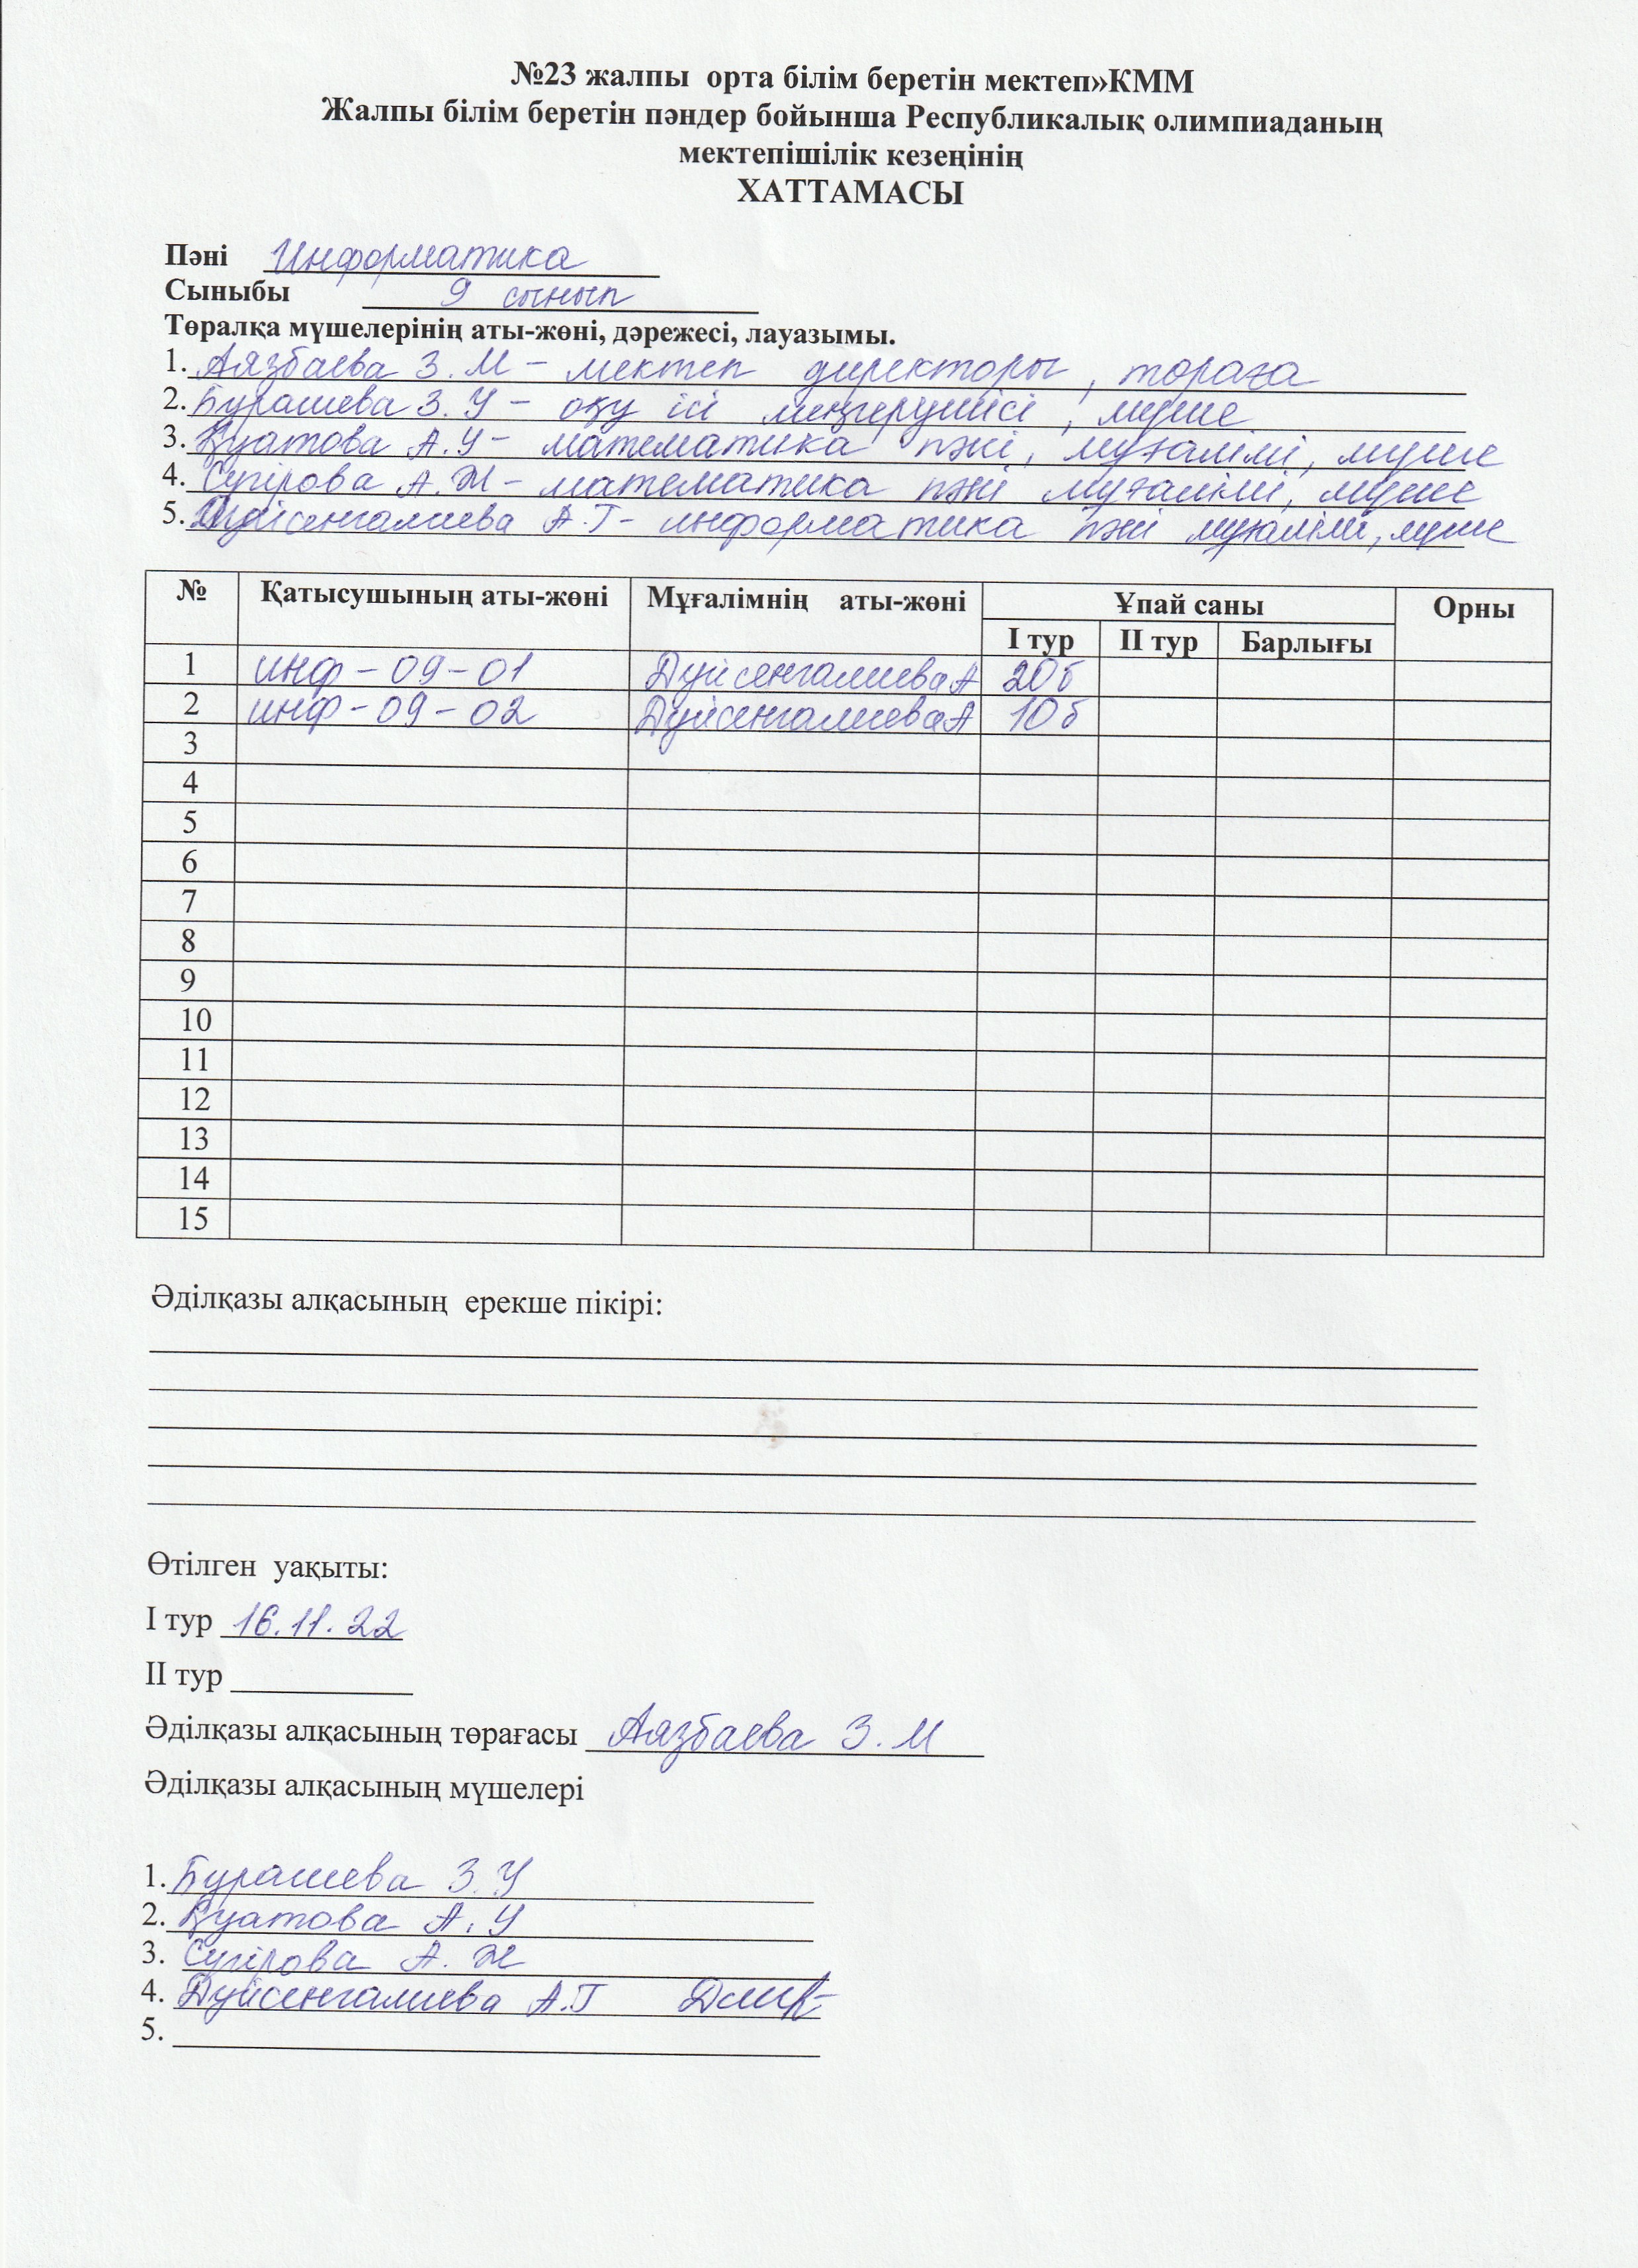 №23 жалпы орта білім беретін мектеп»КММ
Жалпы білім беретін пәндер бойынша Республикалық олимпиаданың
мектепішілік кезеңінің
ХАТТАМАСЫ
Пәні Информатика
Сыныбы 9 сынып
Төралқа мүшелерінің аты-жөні, дәрежесі, лауазымы.
1. Аязбаева З.М – мектеп директоры, төраға
2. Бурашева З.У – оқу ісі меңгерушісі, мүше
3. Қуатова А.У – математика пәні, мұғалімі, мүше
4. Сүгірова А.Ж – математика пәні мұғалімі, мүше
5. Дүйсенгалиева А.Г – информатика пәні мұғалімі, мүше
№ Қатысушының аты-жөні Мұғалімнің аты-жөні Ұпай саны Орны
I тур II тур Барлығы
1 инф – 09 – 01 Дүйсенгалиева А 20б
2 инф – 09 – 02 Дүйсенгалиева А 10б
3
4
5
6
7
8
9
10
11
12
13
14
15
Әділқазы алқасының ерекше пікірі:
Өтілген уақыты:
I тур 16.11.22
II тур
Әділқазы алқасының төрағасы Аязбаева З.М
Әділқазы алқасының мүшелері
1. Бурашева З.У
2. Қуатова А.У
3. Сүгірова А.Ж
4. Дүйсенгалиева А.Г
5.